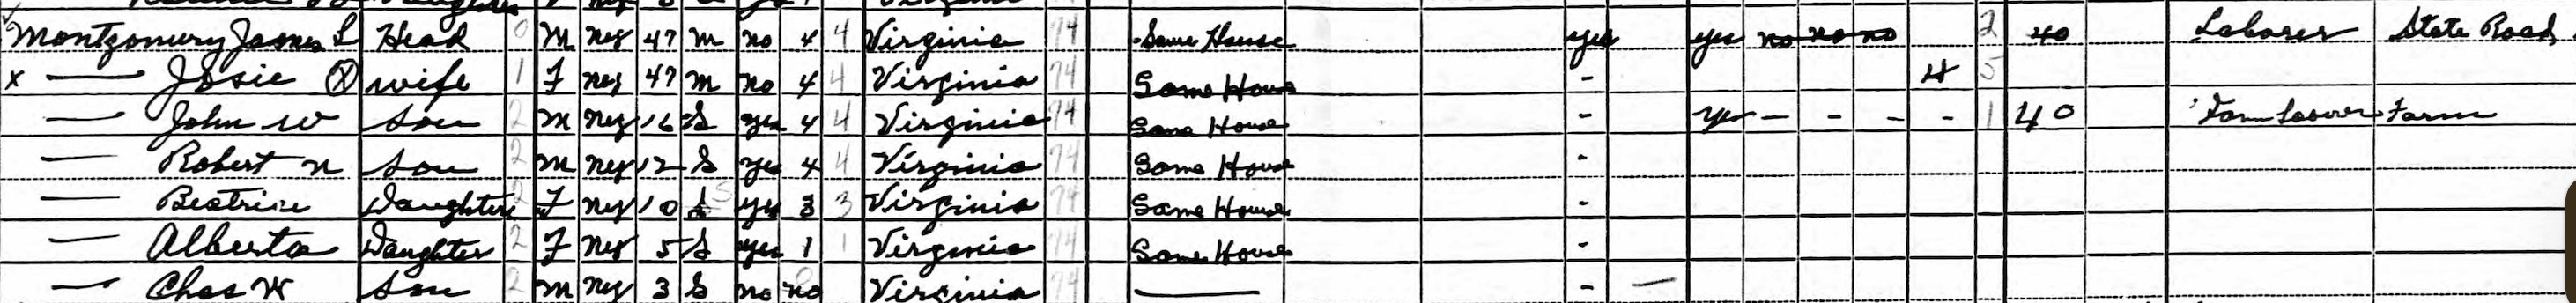 Montgomery James L Head 0 M Neg 47 M no 4 4 Virginia 74 Same House yes yes no no no 2 40 Laborer State Road
x — Josie Ⓧ wife 1 F Neg 47 M no 4 4 Virginia 74 Same House - H 5
— John W Son 2 M Neg 16 S yes 4 4 Virginia 74 Same House - yes - - - - 1 40 Farm Laborer Farm
— Robert N Son 2 M Neg 12 S yes 4 4 Virginia 74 Same House -
— Beatrice Daughter 2 F Neg 10 S yes 3 3 Virginia 74 Same House -
— Alberta Daughter 2 F Neg 5 S yes 1 1 Virginia 74 Same House -
— Chas W Son 2 M Neg 3 S no no 0 Virginia 74 — - —